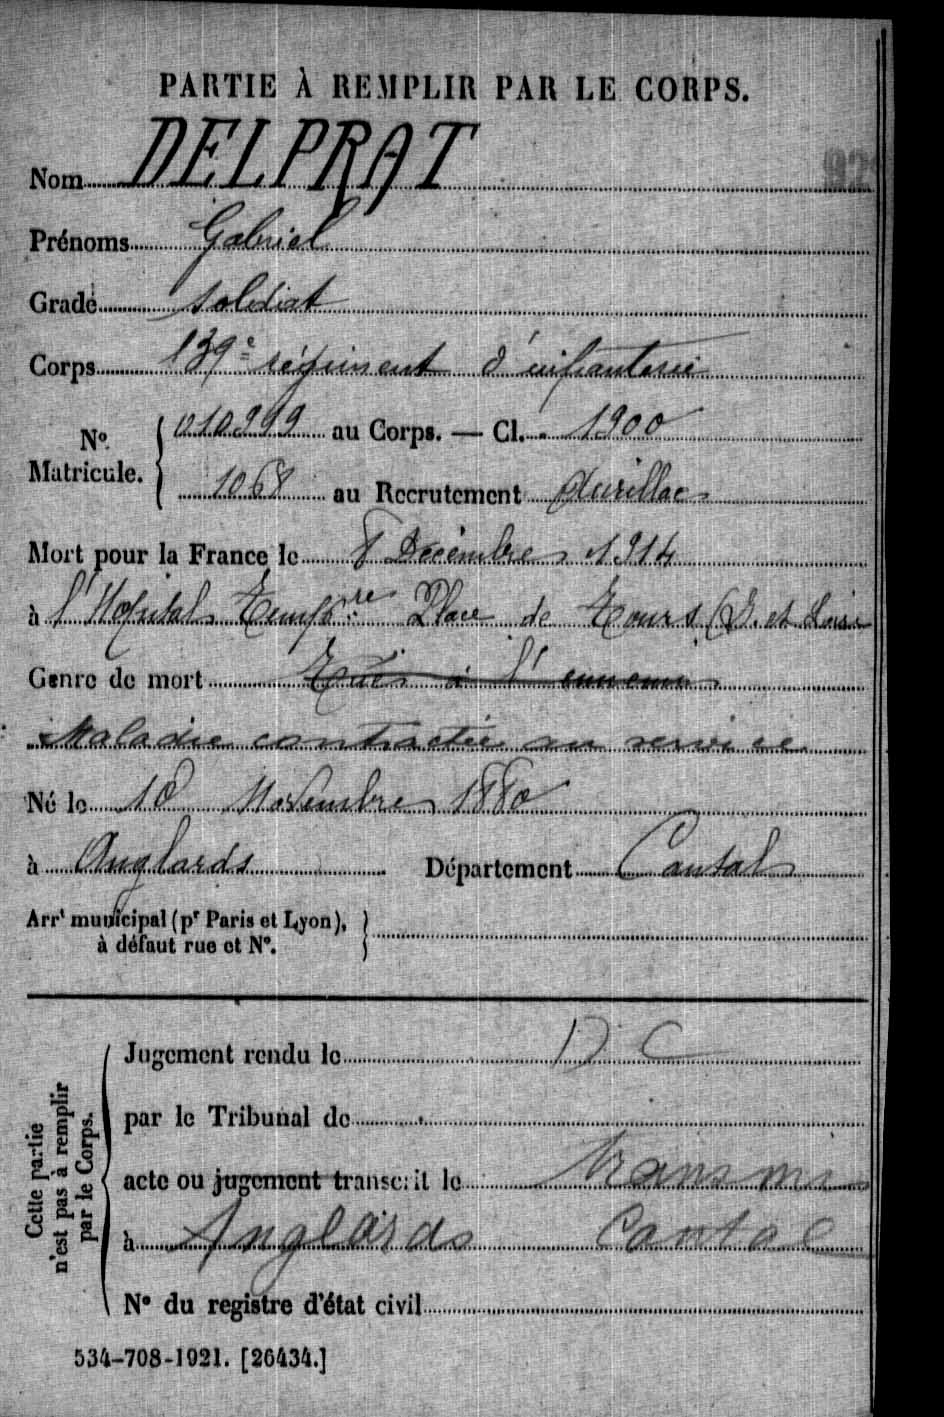 PARTIE À REMPLIR PAR LE CORPS.
Nom DELPRAT
92
Prénoms Gabriel
Grade soldat
Corps 139e régiment d'infanterie
No Matricule. 010999 au Corps. — Cl. 1900
1068 au Recrutement Aurillac
Mort pour la France le 8 Décembre 1914
à l'Hôpital Tempre Place de Tours (I. et Loire
Genre de mort Tué à l'ennemi
Maladie contractée au service
Né le 18 Novembre 1880
à Anglards Département Cantal
Arrt municipal (pr Paris et Lyon),
à défaut rue et No.
Cette partie n'est pas à remplir par le Corps.
Jugement rendu le D C
par le Tribunal de
acte ou jugement transcrit le transmis
à Anglards Cantal
No du registre d'état civil
534-708-1921. [26434.]